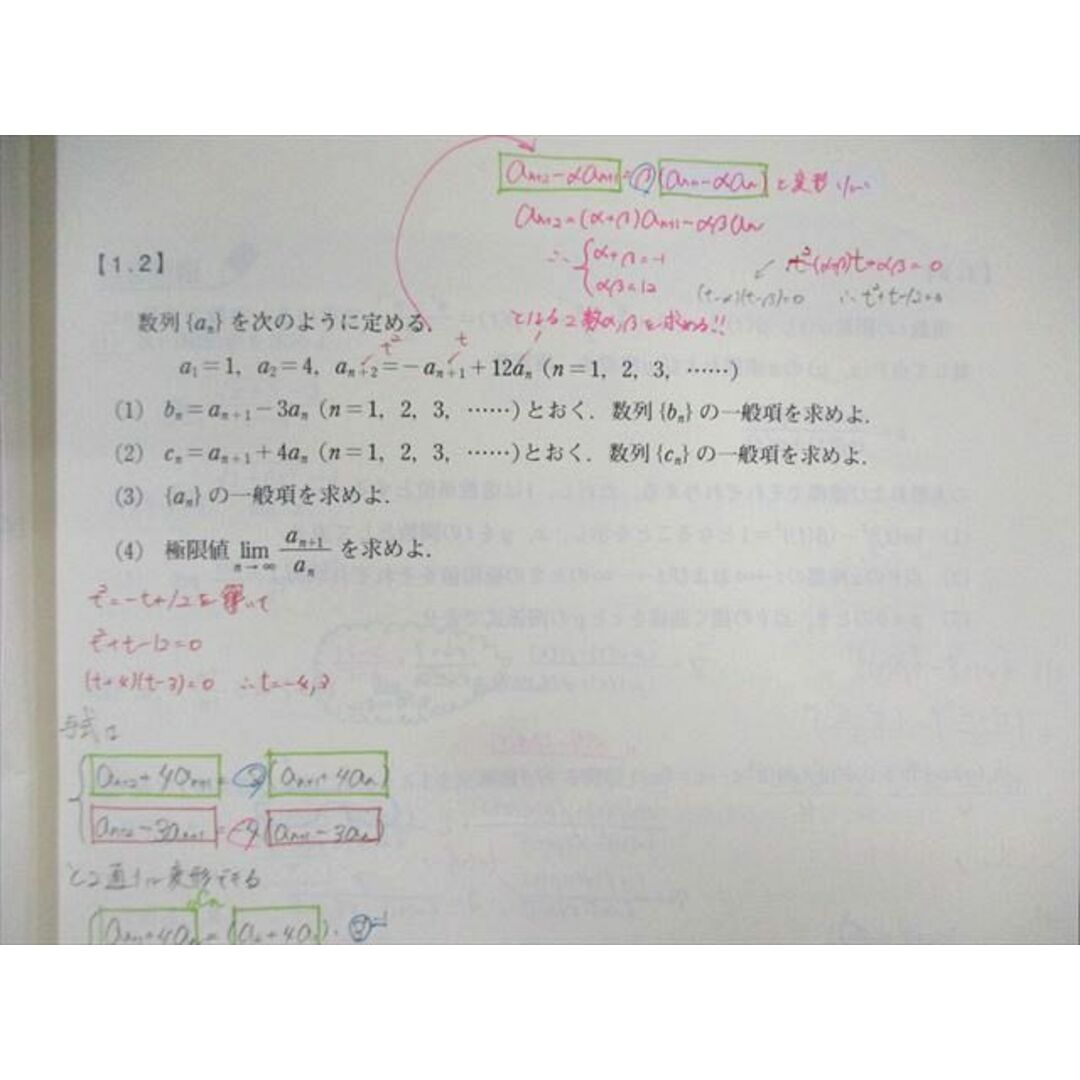 a_{n+2}-αa_{n+1}=β(a_{n+1}-αa_n)と変形
a_{n+2}=(α+β)a_{n+1}-αβa_n
∴{α+β=-1
αβ=12
t²-(α+β)t+αβ=0
(t-α)(t-β)=0 ∴t²+t-12=0
となる2数α,βを求める!!
【1.2】
数列{a_n}を次のように定める.
t² t 1
a₁=1, a₂=4, a_{n+2}=-a_{n+1}+12a_n (n=1, 2, 3, ……)
(1) b_n=a_{n+1}-3a_n (n=1, 2, 3, ……)とおく. 数列{b_n}の一般項を求めよ.
(2) c_n=a_{n+1}+4a_n (n=1, 2, 3, ……)とおく. 数列{c_n}の一般項を求めよ.
(3) {a_n}の一般項を求めよ.
(4) 極限値 lim_{n→∞} a_{n+1}/a_n を求めよ.
t²=-t+12を解いて
t²+t-12=0
(t+4)(t-3)=0 ∴t=-4,3
与式は
{a_{n+2}+4a_{n+1}=3(a_{n+1}+4a_n)
a_{n+2}-3a_{n+1}=-4(a_{n+1}-3a_n)
と2通りに変形できる
c_n
(a_{n+1}+4a_n=(a₂+4a₁)・3^{n-1}